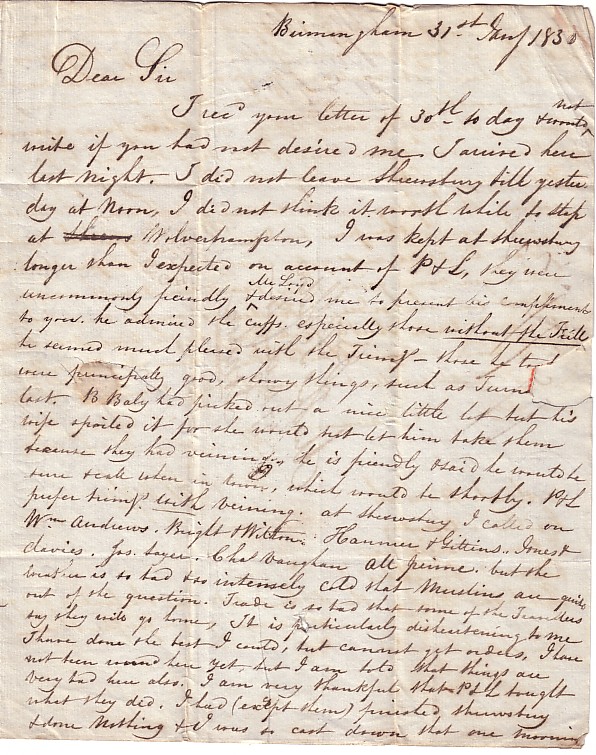 Birmingham 31st Jany 1830
Dear Sir
I recd your letter of 30th to day & would not
write if you had not desired me I arrived here
last night. I did not leave Shrewsbury till yester
day at Noon, I did not think it worth while to stop
at Wolverhampton, I was kept at Shrewsbury
longer than I expected on account of P&L, they were
uncommonly friendly & Mr Loyd desired me to present his compliments
to you. he admired the cuffs. especially those without the Frill
he seemed much pleased with the Trimgs - those he took
were principally good, showy things, such as Turn
last. B Baly had picked out a nice little lot but his
wife spoiled it for she would not let him take them
because they had veining, he is friendly & said he would be
sure & call when in town, which would be shortly. P&L
prefer trimgs. with veining at Shrewsbury I called on
Wm Andrews. Bright & Wilton. Hanmer & Gittins. Jones &
davies. Jos. Sayer. Chas Vaughan all prime. but the
weather is so bad & so intensely cold that Muslins are quite
out of the question. Trade is so bad that some of the Travellers
say they will go home, It is particularly disheartening to me
I have done the best I could, but cannot get orders, I have
not been round here yet, but I am told that things are
very bad here also. I am very thankful that P&L bought
what they did. I had (except them) finished Shrewsbury
& done Nothing & I was so cast down that one morning